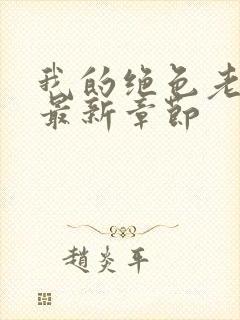 我的绝色老
最新章节
趙炎平